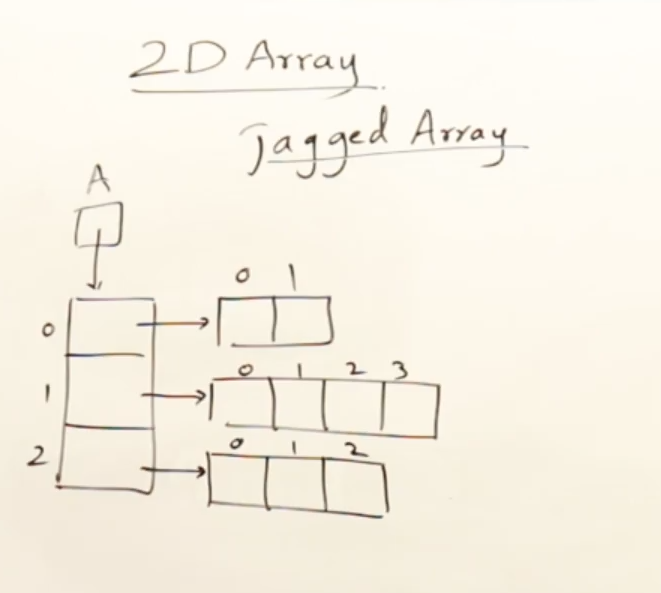 2D Array
Jagged Array
A
0 1
0
0 1 2 3
1
0 1 2
2